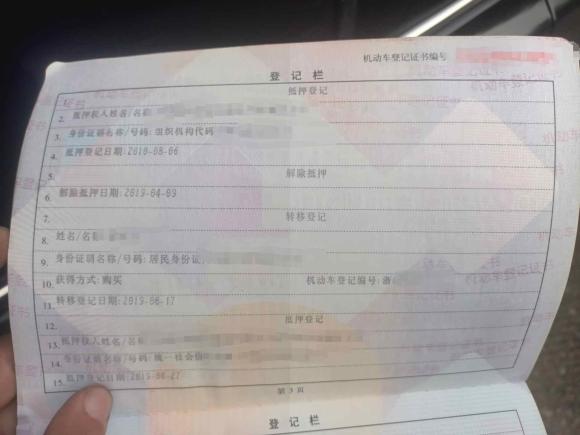 机动车登记证书编号
登记栏
抵押登记
2. 抵押权人姓名/名称
3. 身份证明名称/号码:组织机构代码
4. 抵押登记日期:2018-08-06
5. 解除抵押
6. 解除抵押日期:2019-04-09
7. 转移登记
8. 姓名/名称
9. 身份证明名称/号码:居民身份证
10. 获得方式:购买 机动车登记编号:浙
11. 转移登记日期:2019-06-17
12. 抵押登记
13. 抵押权人姓名/名称
14. 身份证明名称/号码:统一社会信
15. 抵押登记日期:2019-06-27
第 3 页
登记栏